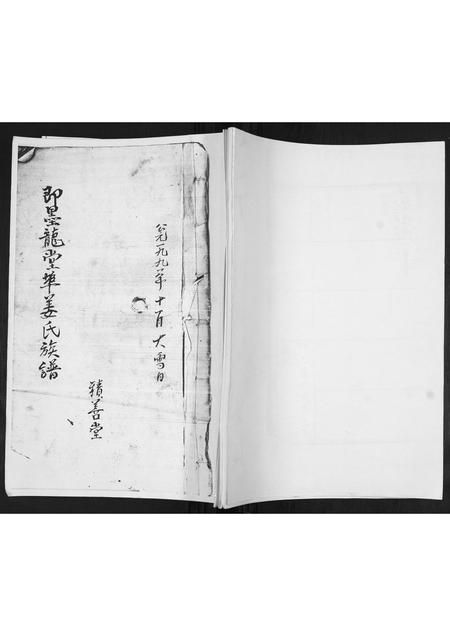 公元一九九年 十月 大雪日
積善堂
即墨龍堂埠姜氏族譜